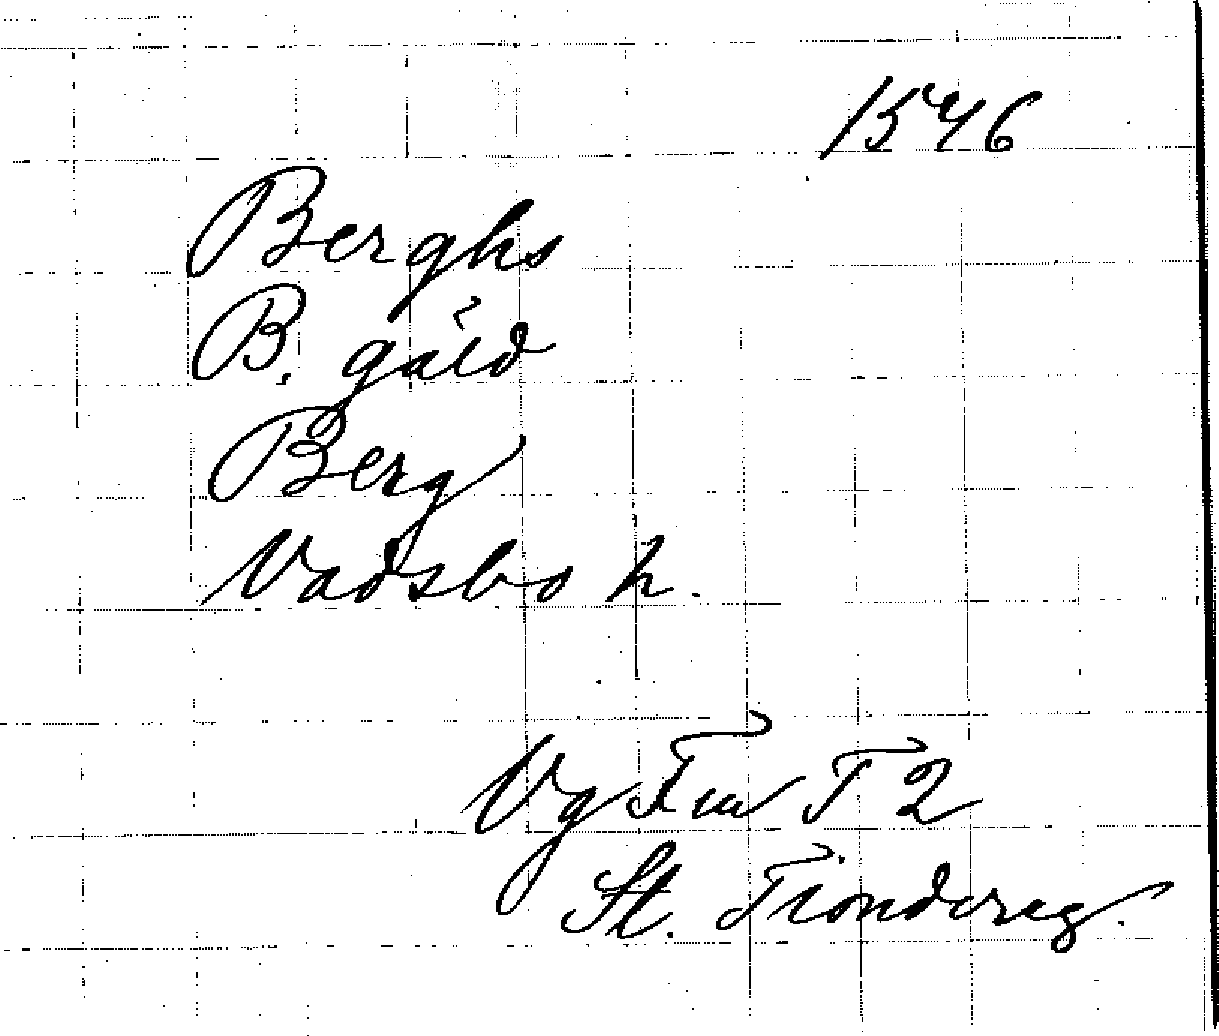 1546
Berghs
B. gäld
Berg
Vadsbo h.
Vg Fm T 2
St. Tiondereg.